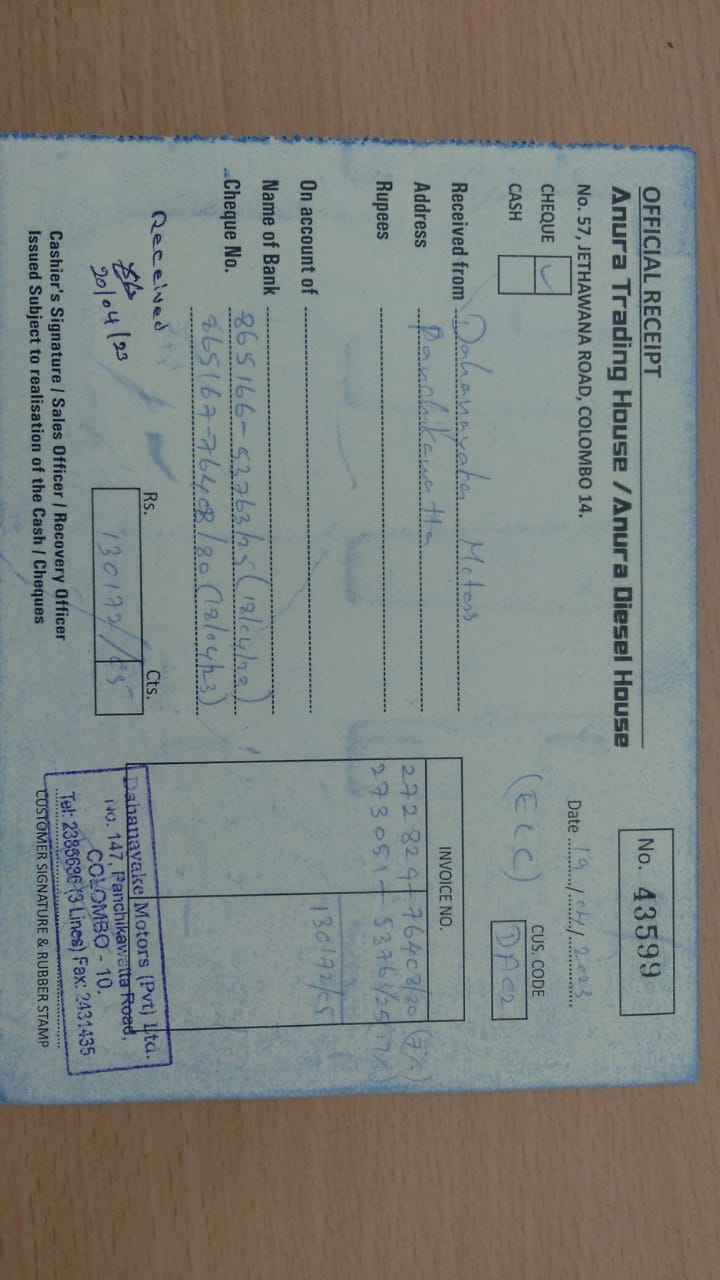 OFFICIAL RECEIPT
No. 43599
Anura Trading House / Anura Diesel House
No. 57, JETHAWANA ROAD, COLOMBO 14.
Date 19/04/2023
CHEQUE ✓
CASH
(ELC)
CUS. CODE
DA02
Received from Dahanayaka Motors
Address Panchikawatta
Rupees
INVOICE NO.
272829-76408/80 (7%)
273051-53763/25 (7%)
130172/05
On account of
Name of Bank
Cheque No. 865166-53763/25 (12/04/23)
865167-76408/80 (12/04/23)
Received
20/04/23
Rs. Cts.
130172/05
Dahanayake Motors (Pvt) Ltd.
No. 147, Panchikawatta Road,
COLOMBO - 10.
Tel: 2388636 (3 Lines) Fax: 2431435
Cashier's Signature / Sales Officer / Recovery Officer
Issued Subject to realisation of the Cash / Cheques
CUSTOMER SIGNATURE & RUBBER STAMP